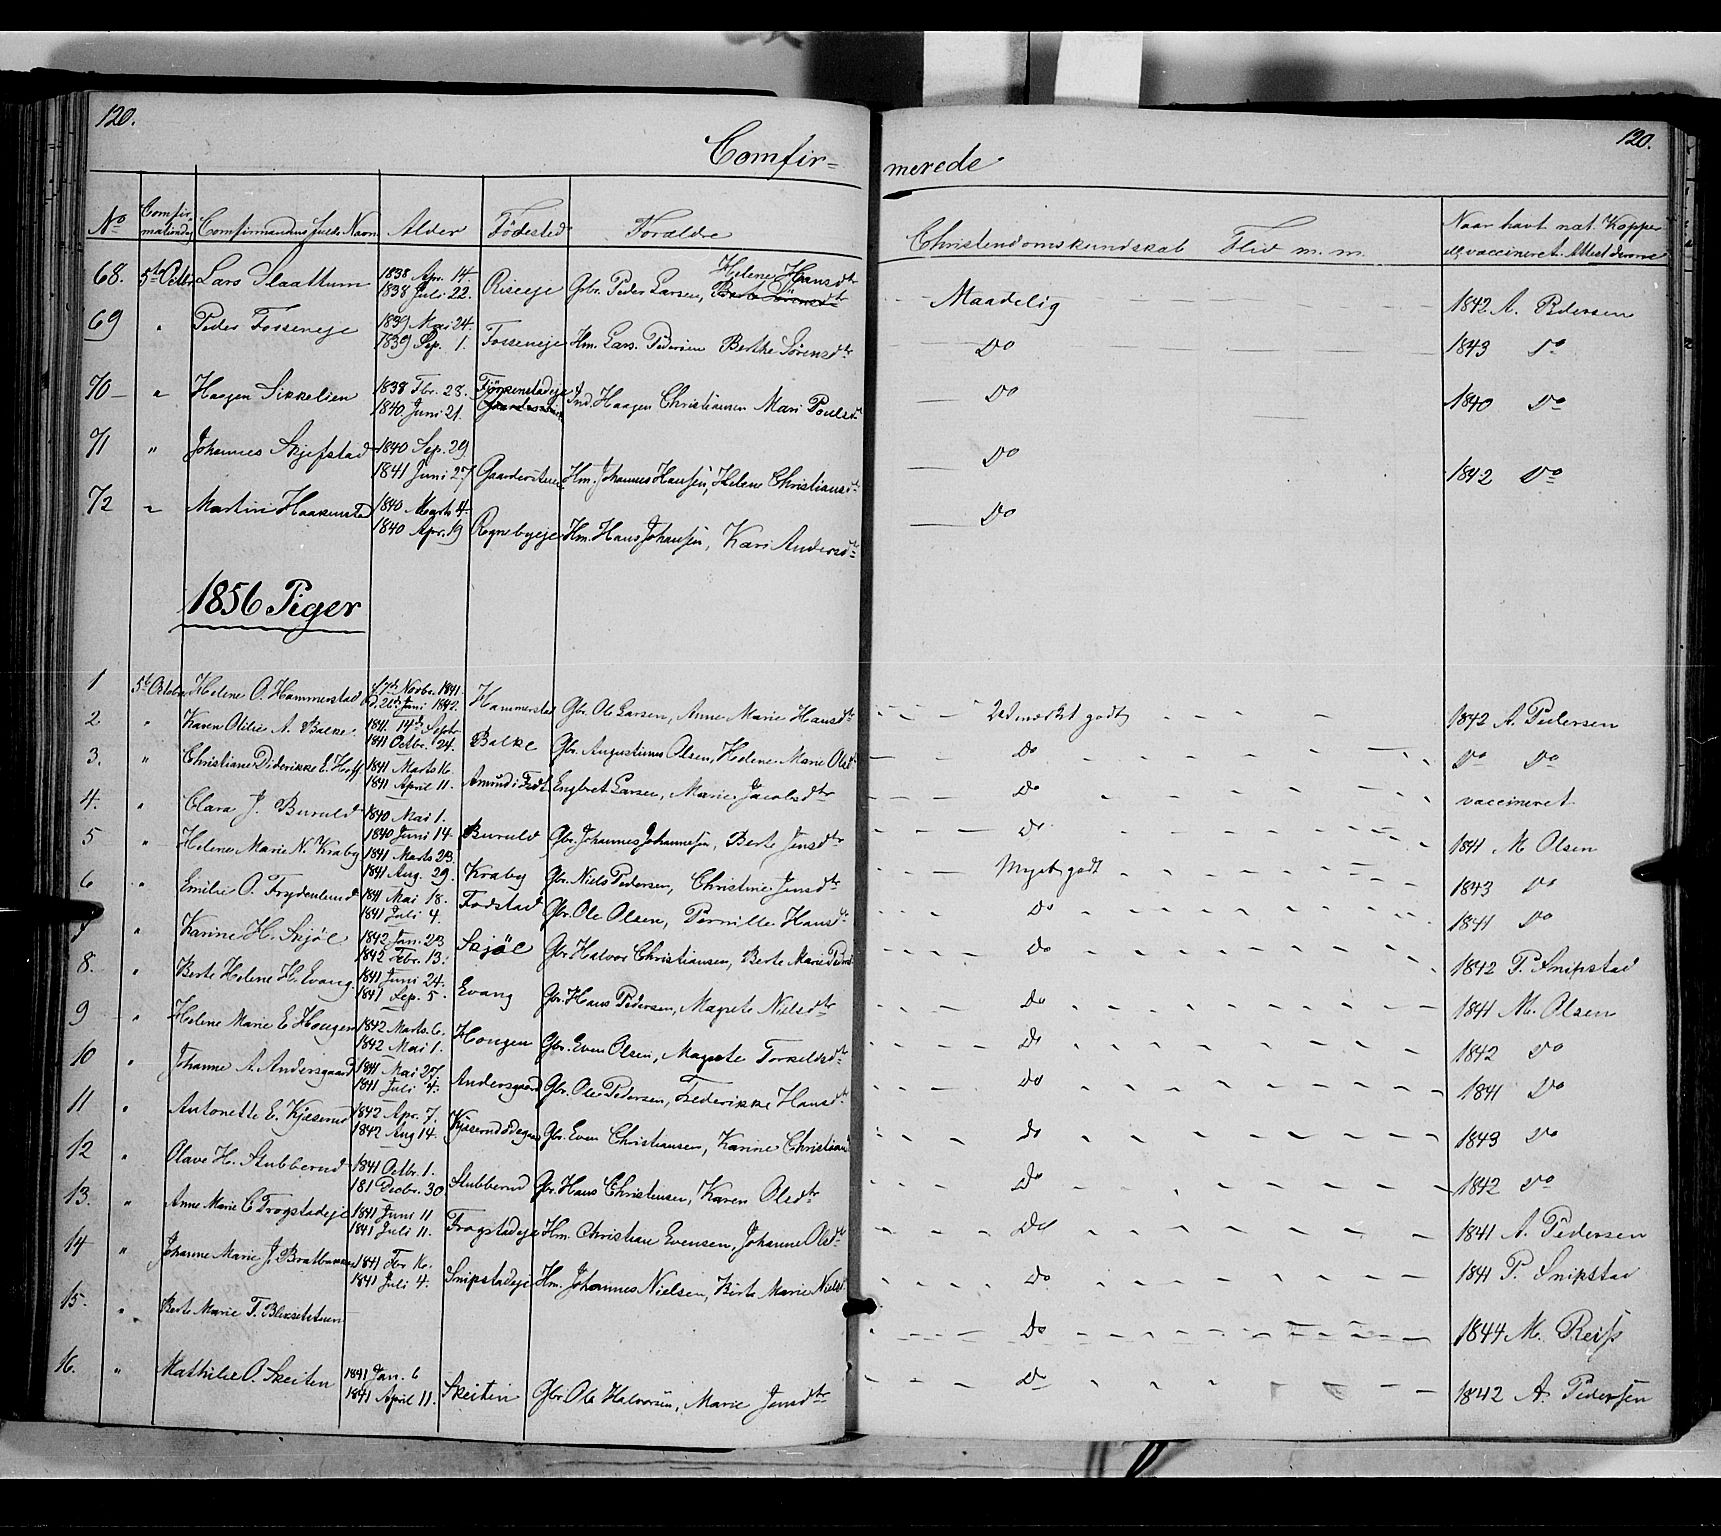 120.
120.
Comfir=
merede
No Comfirmationsdag Comfirmandens fulde Navn Alder Fødested Forældre Christendomskundskab Flid m. m. Naar havt nat. Kopper
elg. vaccineret. Attest derom
68. 5te Octbr. Lars Slaattum 1838 Apr. 14 Riseeje Gbr. Peder Larsen, Helene Hansdtr Maadelig 1842 A. Pedersen
1838 Juli 22. Berte Sørensdtr
69 " Peder Fosseneje 1839 Mai 24. Fosseneje Hm. Lars Pedersen Berthe Sørensdtr Do 1843 Do
1839 Sep. 1.
70 " Haagen Sikkelien 1838 Fbr. 28. Ind. Haagen Christiansen Mari Poulsdtr Do 1840 Do
1840 Juni 21.
71 " Johannes Skjefstad 1840 Sep. 29 Hm. Johannes Hansen, Helene Christiansdtr Do 1842 Do
1841 Juni 27
72 " Martin Haakensta 1840 Marts 4. Rognebyeje Hm. Hans Johansen, Kari Andersdtr Do
1840 Apr. 19
1856 Piger
1 5te Octobr. Helene O. Hammerstad f. 7de Novbr. 1841. Hammerstad Gbr. Ole Larsen, Anne Marie Hansdtr Udmærket godt 1842 A. Pedersen
D. 26de Juni 1842.
2 " Karen Otilie A. Balke 1841. 14de Septbr Balke Gbr. Augustinus Olsen, Helene Marie Olsdtr Do Do Do
1841 Octbr. 24.
3. " Christiane Diderikke E. Hoff 1841 Marts 16. Engbret Larsen, Marie Jacobsdtr Do vaccineret
1841 April 11.
4. " Clara J. Buruld 1840 Mai 1. Buruld Gbr. Johannes Johannesen, Berte Jensdtr Do 1841 M. Olsen
1840 Juni 14.
5 " Helene Marie N. Kraby 1841 Marts 23. Kraby Gbr. Niels Pedersen, Christine Jensdtr Meget godt 1843 Do
1841 Aug. 29.
6 " Emilie O. Frydenlund 1841 Mai 18. Fodstad Gbr. Ole Olsen, Pernille Hansdtr Do 1841 Do
1841 Juli 4.
7 " Karine H. Skjöl 1842 Jan. 23 Skjöl Gbr. Halvor Christiansen, Berte Marie Pedersdtr Do 1842 P. Snipstad
1842 Fbr. 13.
8. " Berte Helene H. Evang. 1841 Juni 24. Evang Gbr. Hans Pedersen, Magrete Nielsdtr Do 1841 M. Olsen
1841 Sep. 5.
9 " Helene Marie E. Hougen 1842 Marts 6. Hougen Gbr. Even Olsen, Magrete Torkeldsdtr Do 1842 Do
1842 Mai 1.
10 " Johanne A. Andersgaard 1841 Mai 27. Andersgaard Gbr. Ole Pedersen, Frederikke Hansdtr Do 1841 Do
1841 Juli 4.
11 " Antonette E. Kjøserud 1842 Apr. 7. Gbr. Even Christiansen, Karine Christiansdtr Do 1843 Do
1842 Aug 14.
12 " Olave H. Stubberud 1841 Octbr. 1. Stubberud Gbr. Hans Christensen, Karen Olsdtr Do 1842 Do
181 Decbr. 30
13. " Anne Marie C. Frogstadeje 1841 Juni 11 Frogstadeje Hm. Christian Evensen, Johanne Olsdtr Do 1841 A. Pedersen
1841 Juli 11.
14 " Johanne Marie J. Bratbakken 1841 Fbr 16. Snipstadeje Hm. Johannes Nielsen, Berte Marie Nielsd Do 1841 P. Snipstad
1841 Juli 4.
15. " Berte Marie T. Do 1844 M. Reiss
16. " Mathilde O. Skeiten 1841 Jan. 6 Skeiten Gbr. Ole Halvorsen, Marie Jensdtr Do 1842 A. Pedersen
1841 April 11.